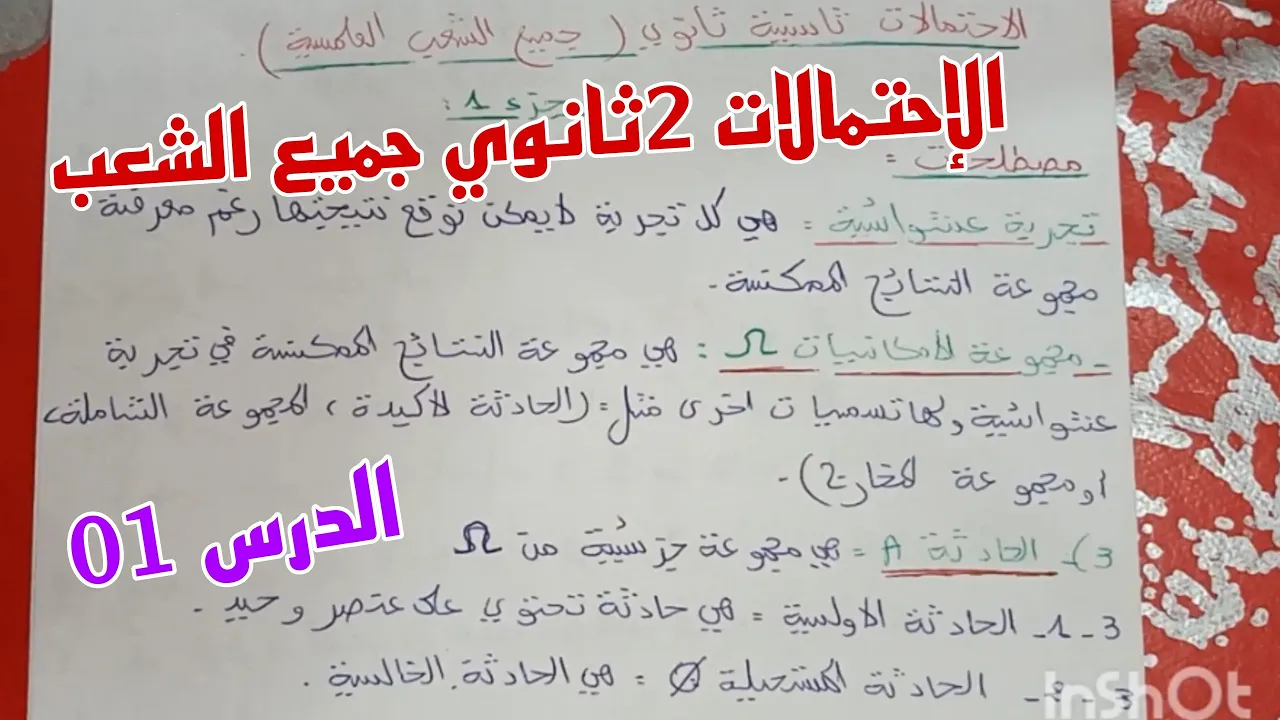 الاحتمالات ثانية ثانوي ( جميع الشعب العلمية ).
الإحتمالات 2ثانوي جميع الشعب
جزء 1 :
مصطلحات =
تجربة عشوائية = هي كل تجربة لا يمكن توقع نتيجتها رغم معرفة
مجموعة النتائج الممكنة .
- مجموعة الامكانيات Ω : هي مجموعة النتائج الممكنة في تجربة
عشوائية ولها تسميات اخرى مثل = (الحادثة الاكيدة ، المجموعة الشاملة،
او مجموعة المخارج) .
الدرس 01
3)- الحادثة A = هي مجموعة جزئية من Ω
3-1- الحادثة الاولية = هي حادثة تحتوي على عنصر وحيد .
3-2- الحادثة المستحيلة ∅ = هي الحادثة الخالية .
InShOt